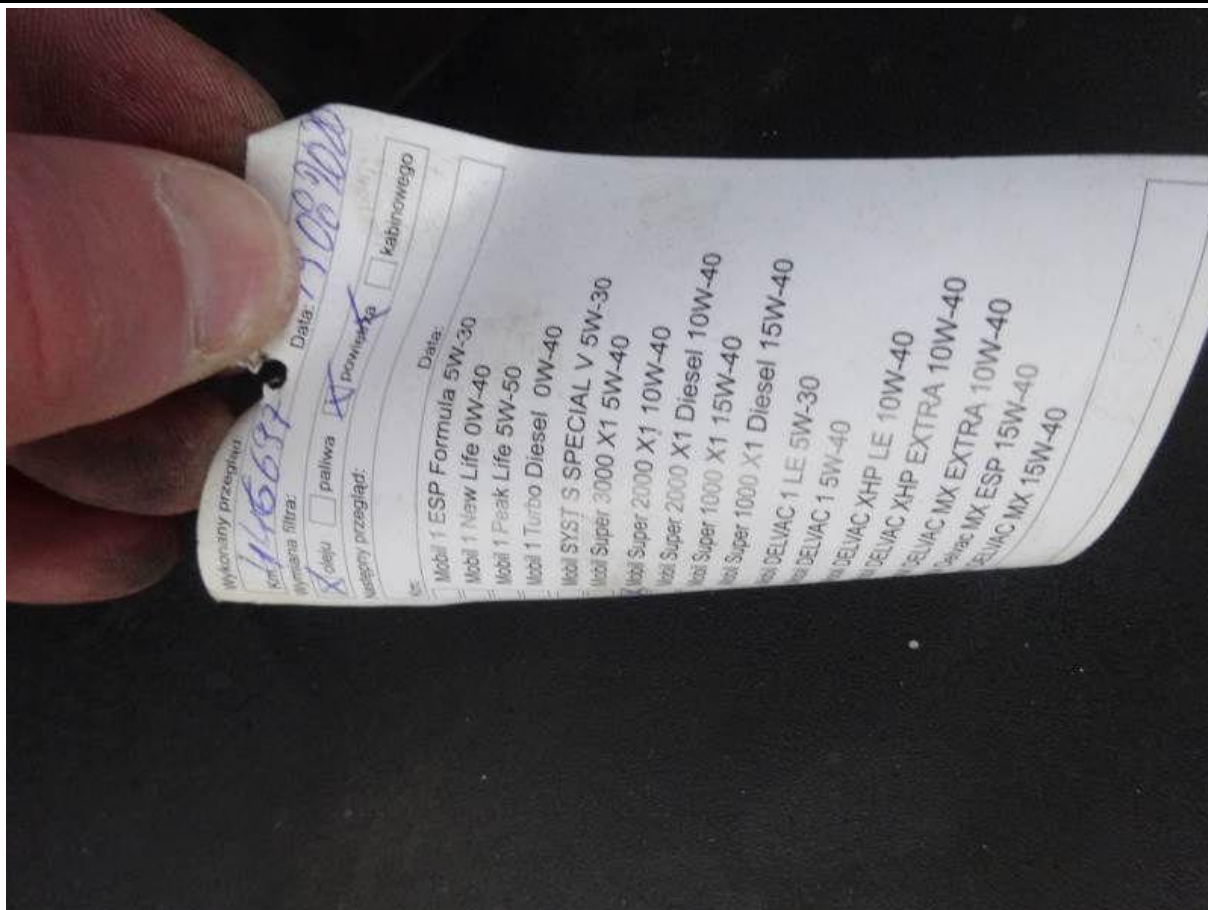 Wykonany przegląd
Km Data:
Wymiana filtra:
oleju paliwa powietrza kabinowego
Następny przegląd:
Km: Data:
Mobil 1 ESP Formula 5W-30
Mobil 1 New Life 0W-40
Mobil 1 Peak Life 5W-50
Mobil 1 Turbo Diesel 0W-40
Mobil SYST S SPECIAL V 5W-30
Mobil Super 3000 X1 5W-40
Mobil Super 2000 X1 10W-40
Mobil Super 2000 X1 Diesel 10W-40
Mobil Super 1000 X1 15W-40
Mobil Super 1000 X1 Diesel 15W-40
DELVAC 1 LE 5W-30
DELVAC 1 5W-40
DELVAC XHP LE 10W-40
DELVAC XHP EXTRA 10W-40
DELVAC MX EXTRA 10W-40
Delvac MX ESP 15W-40
DELVAC MX 15W-40